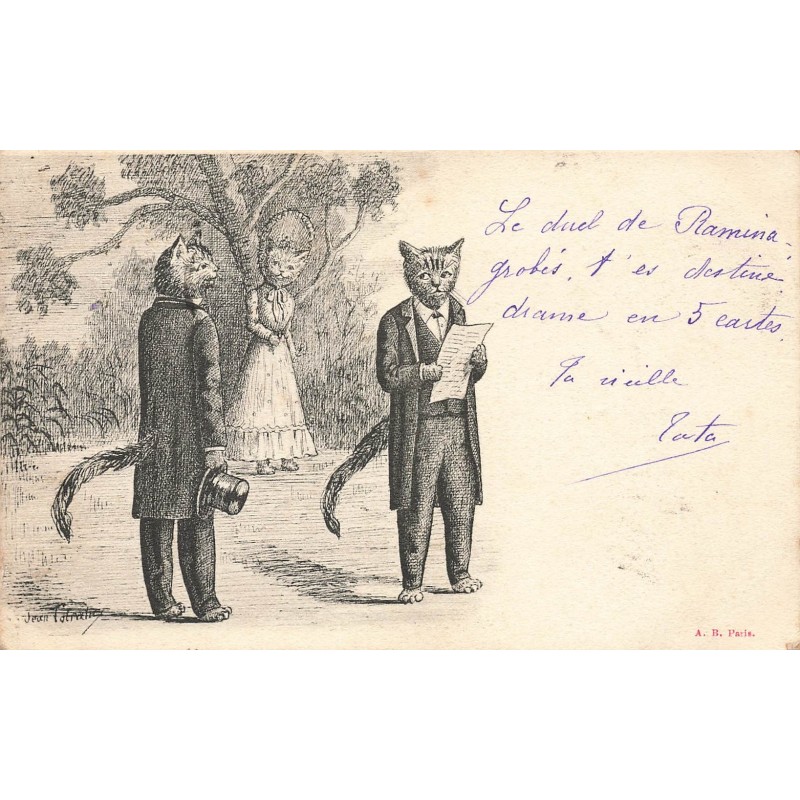 Le duel de Ramina-
grobis, t'es destiné
drame en 5 cartes.
Ta vieille
Tata
Jean
A. B. Paris.